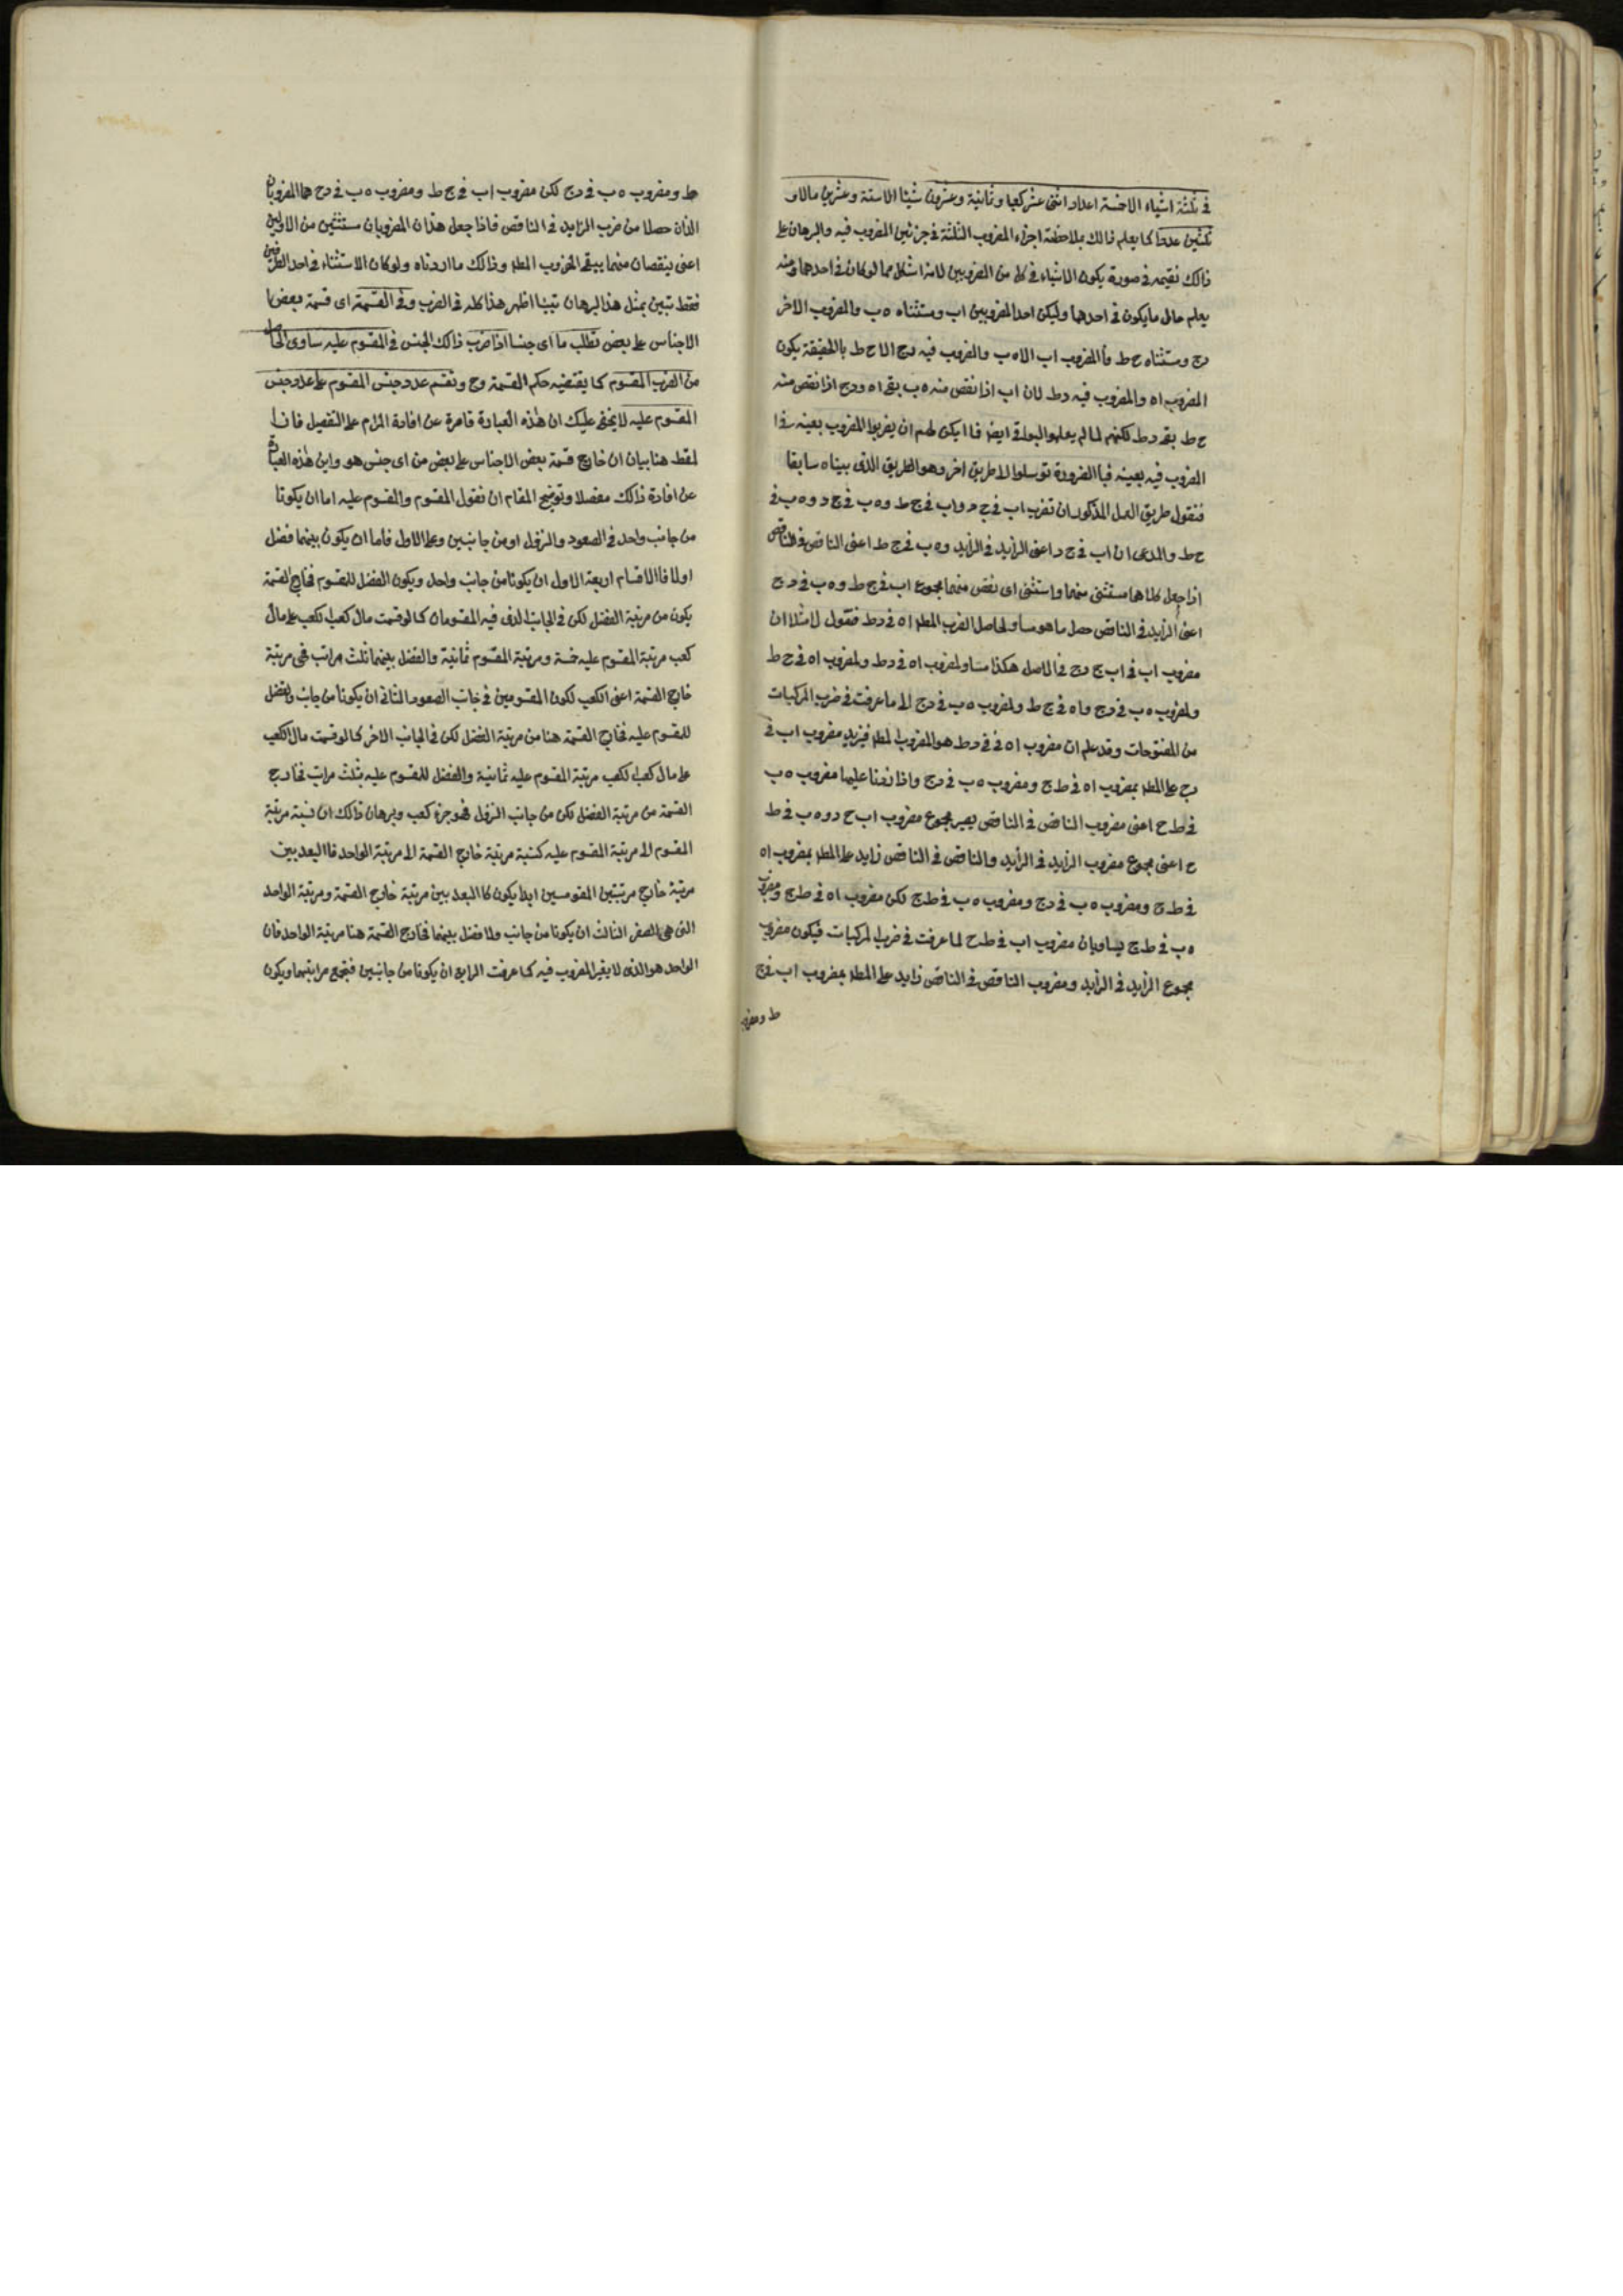 في ثلثة اشياء الا خمسة اعداد اثنى عشر كعبا وثمانية وعشرون شيئا الا ستة وعشرين مالا و
ثلثين عددا كما يعلم ذالك بملاحظة اجزاء المضروب الثلثة في جزئين المضروب فيه والبرهان على
ذالك نقيمه في صورة يكون الاشياء في كل من المضروبين لانه اشكل مما لو كان في احدهما ومنه
يعلم حال ما يكون في احدهما وليكن احد المضروبين اب ومستثناه ه ب والمضروب الاخر
دج ومستثناه ح ط فالمضروب اب الا ه ب والمضروب فيه دج الا ح ط بالحقيقة يكون
المضروب اه والمضروب فيه د ط لان اب اذا نقص منه ه ب بقى اه ودج اذا نقص منه
ح ط بقى د ط لكنهم لما لم يعلموا البواقى ايضا فما امكن لهم ان يضربوا المضروب بعينه في
المضروب فيه بعينه فبالضرورة توسلوا الا طريق اخر وهو الطريق الذى بيناه سابقا
فنقول طريق العمل المذكور ان تضرب اب في ج د واب في ج ط و ه ب في ج د و ه ب في
ح ط والمدعى ان اب في ج د اعنى الزايد في الزايد و ه ب في ج ط اعنى الناقص في الناقص
اذا جعل كلاهما مستثنى منهما واستثنى اى نقص منهما مجموع اب في ج ط و ه ب في د ج
اعنى الزايد في الناقص حصل ما هو مساو لحاصل الضرب المطلـ اه في د ط فنقول لا مثلا ان
مضروب اب في اب ج د ج في الاصل هكذا مساو لمضروب اه في د ط ولمضروب اه في ح ط
ولمضروب ه ب في د ج و اه في ج ط ولمضروب ه ب في د ج الى ما عرفت في ضرب المركبات
من المفتوحات وقد علم ان مضروب اه في د ط هو المضروب المطلـ فيزيد مضروب اب في
ج على المطلـ بمضروب اه في ط ج ومضروب ه ب في د ج واذا زدنا عليهما مضروب ه ب
في ط ح اعنى مضروب الناقص في الناقص يصير مجموع مضروب اب ح د و ه ب في ط
ح اعنى مجموع مضروب الزايد في الزايد والناقص في الناقص زايد على المطلـ بمضروب اه
في ط ح ومضروب ه ب في د ج ومضروب ه ب في ط ج لكن مضروب اه في ط ج ومضروب
ه ب في ط ج يساويان مضروب اب في ط ح لما عرفت في ضرب المركبات فيكون مضروب
مجموع الزايد في الزايد ومضروب الناقص في الناقص زايد على المطلـ بمضروب اب في ج
ط ومضروب
ط ومضروب ه ب في د ج لكن مضروب اب في ج ط ومضروب ه ب في د ح هما المضروبان
الذان حصلا من ضرب الزايد في الناقص فاذا جعل هذان المضروبان مستثنين من الاولين
اعنى ينقصان منهما يبقى المضروب المطلـ وذالك ما اردناه ولو كان الاستثناء في احد الطرفين
فقط تبين بمثل هذا البرهان هذا كله في الضرب وفى القسمة اى قسمة بعض
الاجناس على بعض تطلب ما اى جنسا اذا ضرب ذالك الجنس في المقسوم عليه ساوى الحاصل
من الضرب المقسوم كما يقتضيه حكم القسمة وح ونقسم عدد جنس المقسوم على عدد جنس
المقسوم عليه لا يخفى عليك ان هذه العبادة قاصرة عن افادة المرام على التفصيل فان
لمقط هنا بيان ان خارج قسمة بعض الاجناس على بعض من اى جنس هو واين هذه العبارة
عن افادة ذالك مفصلا وتوضيح المقام ان نقول المقسوم والمقسوم عليه اما ان يكونا
من جانب واحد في الصعود والنزول او من جانبين وعلى الاول فاما ان يكون بينهما فضل
اولا فالاقسام اربعة الاول ان يكونا من جانب واحد ويكون الفضل للمقسوم فخارج القسمة
يكون من مرتبة الفضل لكن في الجانب الذى فيه المقسومان كما لو قسمت مال كعب كعب على مال
كعب مرتبة المقسوم عليه خمسة ومرتبة المقسوم ثمانية والفضل بينهما ثلث مراتب فهى مرتبة
خارج القسمة اعنى الكعب لكون المقسومين في جانب الصعود الثانى ان يكونا من جانب والفضل
للمقسوم عليه فخارج القسمة هنا من مرتبة الفضل لكن في الجانب الاخر كما لو قسمت مال الكعب
على مال كعب كعب مرتبة المقسوم عليه ثمانية والفضل للمقسوم عليه بثلث مراتب فخارج
القسمة من مرتبة الفضل لكن من جانب النزول فهو جزء كعب وبرهان ذالك ان نسبة مرتبة
المقسوم الى مرتبة المقسوم عليه كنسبة مرتبة خارج القسمة الى مرتبة الواحد فالبعد بين
مرتبة خارج مرتبتين المقومسين ابدا يكون كالبعد بين مرتبة خارج القسمة ومرتبة الواحد
التى هى الصفر الثالث ان يكونا من جانب ولا فضل بينهما فخارج القسمة هنا مرتبة الواحد فان
الواحد هو الذى لا يغير المضروب فيه كما عرفت الرابع ان يكونا من جانبين فتجمع مراتبهما ويكون